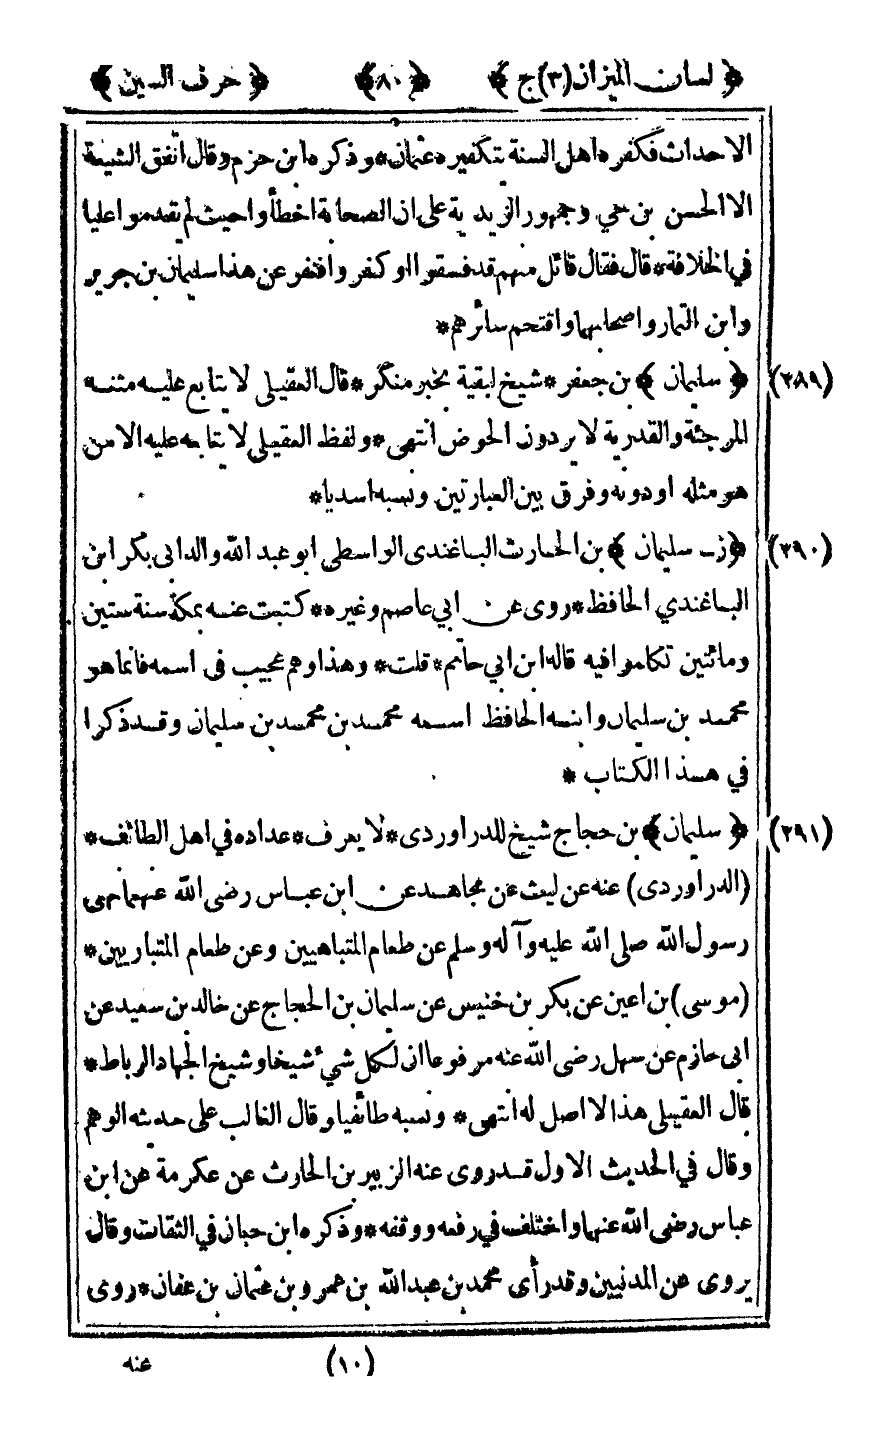 ﴿ لسان الميزان (٣) ج ﴾ ﴿ ٨٠ ﴾ ﴿ حرف السين ﴾
الاحداث فكفره اهل السنة بتكفيره عثمان * وذكره ابن حزم وقال اتفق الشيعة
الا الحسن بن حي وجمهور الزيدية على ان الصحابة اخطأوا حيث لم يقدموا عليا
في الخلافة * قال فقال قائل منهم قد فسقوا او كفر وافنفر عن هذا سليمان بن جرير
وابن التمار واصحابهما واقتحم سائرهم *
(٢٨٩) ﴿ سليمان ﴾ بن جعفر * شيخ لبقية بخبر منكر * قال العقيلي لا يتابع عليه متنه
المرجئة والقدرية لا يردون الحوض انتهى * ولفظ العقيلي لا يتابعه عليه الا من
هو مثله او دونه وفرق بين العبارتين ونسبه اسديا *
(٢٩٠) ﴿ ز ـ سليمان ﴾ بن الحارث الباغندى الواسطى ابو عبد الله والد ابى بكر ابن
الباغندي الحافظ * روى عن ابي عاصم وغيره * كتبت عنه بمكة سنة ستين
ومائتين تكلموا فيه قاله ابن ابي حاتم * قلت * وهذا وهم عجيب فى اسمه فانما هو
محمد بن سليمان وابنه الحافظ اسمه محمد بن محمد بن سليمان وقد ذكرا
في هذا الكتاب *
(٢٩١) ﴿ سليمان ﴾ بن حجاج شيخ للدراوردى * لا يعرف * عداده في اهل الطائف *
(الدراوردى) عنه عن ليث عن مجاهد عن ابن عباس رضى الله عنهما نهى
رسول الله صلى الله عليه وآله وسلم عن طعام المتباهيين وعن طعام المتباريين *
(موسى) بن اعين عن بكر بن خنيس عن سليمان بن الحجاج عن خالد بن سعيد عن
ابى حازم عن سهل رضى الله عنه مرفوعا ان لكل شيء شيخا وشيخ الجهاد الرباط *
قال العقيلى هذا لا اصل له انتهى * ونسبه طائفيا وقال الغالب على حديثه الوهم
وقال في الحديث الاول قد روى عنه الزبير بن الحارث عن عكرمة عن ابن
عباس رضى الله عنهما واختلف في رفعه ووقفه * وذكره ابن حبان في الثقات وقال
يروى عن المدنيين وقد رأى محمد بن عبدالله بن عمرو بن عثمان بن عفان * روى
(١٠) عنه